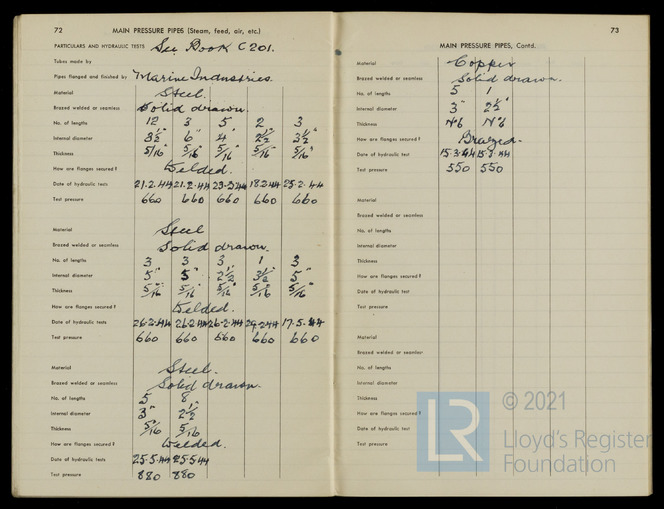 72 MAIN PRESSURE PIPES (Steam, feed, air, etc.)
PARTICULARS AND HYDRAULIC TESTS See Book C 201.
Tubes made by
Pipes flanged and finished by Marine Industries.
Material Steel.
Brazed welded or seamless Solid drawn.
No. of lengths 12 3 5 2 3
Internal diameter 3½" 6" 4" 2½" 3½"
Thickness 5/16" 5/16" 5/16" 5/16" 5/16"
How are flanges secured? Welded.
Date of hydraulic tests 21.2.44 21.2.44 23.2.44 18.2.44 25.2.44
Test pressure 660 660 660 660 660
Material Steel
Brazed welded or seamless Solid drawn.
No. of lengths 3 3 3 1 3
Internal diameter 5" 5" 2½ 3½" 5"
Thickness 5/16" 5/16 5/16" 5/16" 5/16"
How are flanges secured? Welded.
Date of hydraulic tests 26.2.44 26.2.44 26.2.44 29.2.44 17.5.44
Test pressure 660 660 660 660 660
Material Steel.
Brazed welded or seamless Solid drawn.
No. of lengths 5 8
Internal diameter 3" 2½"
Thickness 5/16 5/16
How are flanges secured? Welded.
Date of hydraulic tests 25.5.44 25.5.44
Test pressure 880 880
73
MAIN PRESSURE PIPES, Contd.
Material Copper
Brazed welded or seamless Solid drawn.
No. of lengths 5 1
Internal diameter 3" 2½"
Thickness Nº6 Nº6
How are flanges secured? Brazed.
Date of hydraulic test 15.3.44 15.3.44
Test pressure 550 550
Material
Brazed welded or seamless
No. of lengths
Internal diameter
Thickness
How are flanges secured?
Date of hydraulic test
Test pressure
Material
Brazed welded or seamless
No. of lengths
Internal diameter
Thickness
How are flanges secured?
Date of hydraulic test
Test pressure
LR
© 2021
Lloyd's Register
Foundation